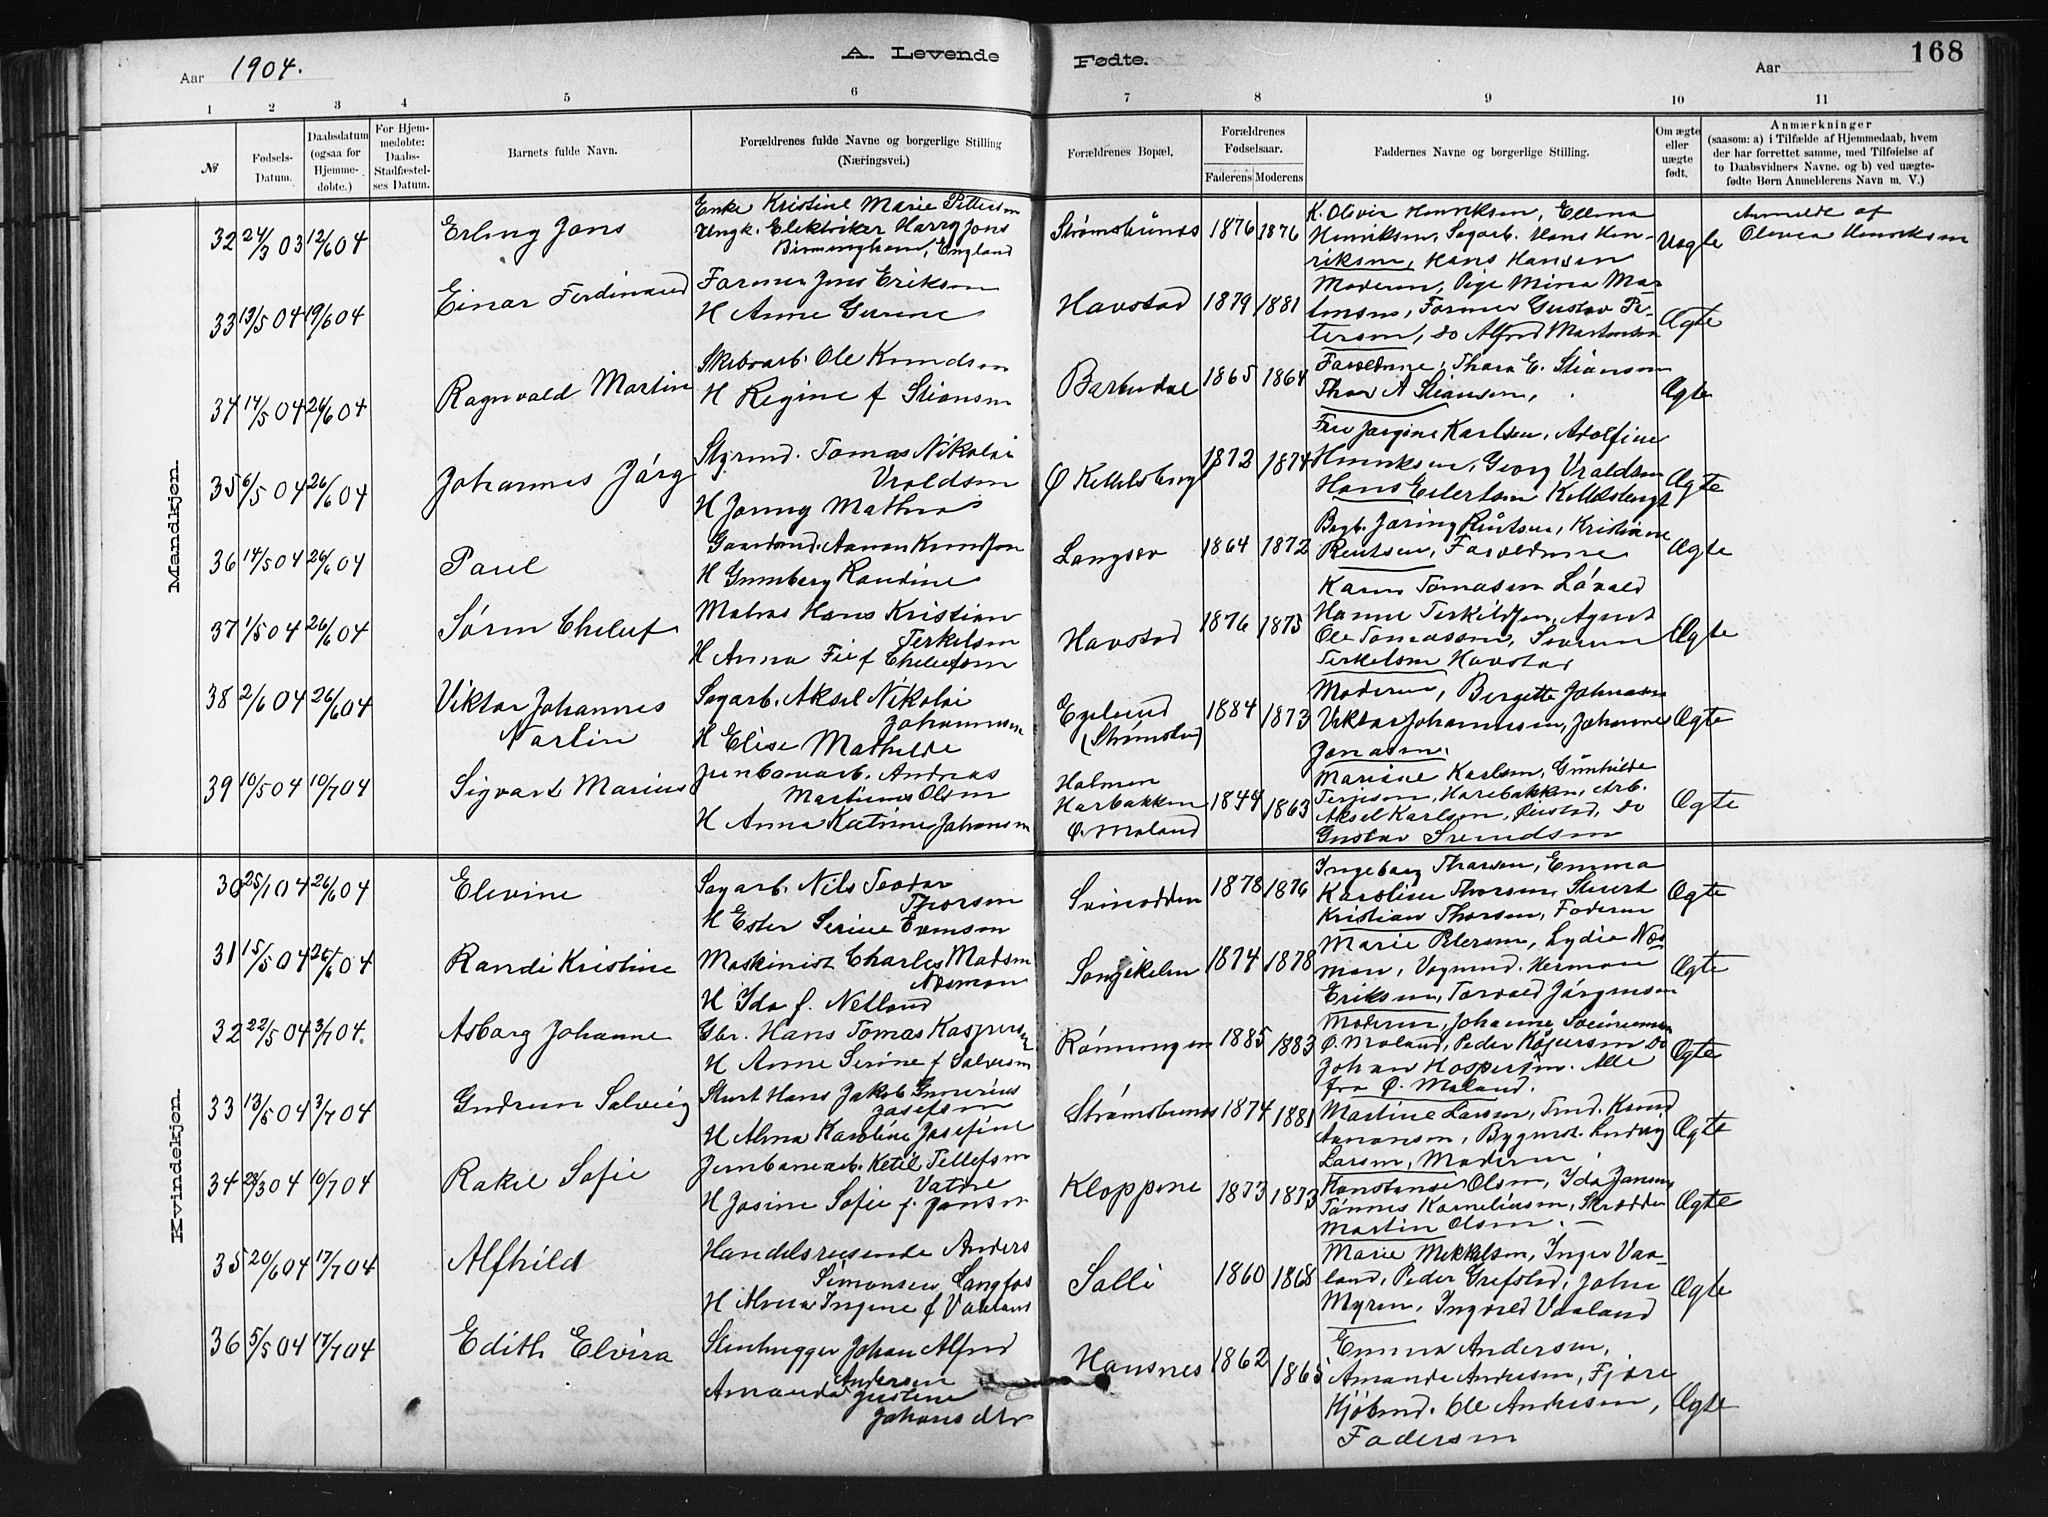 Aar 1904. A. Levende Fødte. Aar 168
1 2 3 4 5 6 7 8 9 10 11
№
Fødsels-Datum.
Daabsdatum (ogsaa for Hjemme-døbte.)
For Hjem-medøbte: Daabs-Stadfæstel-ses Datum.
Barnets fulde Navn.
Forældrenes fulde Navne og borgerlige Stilling (Næringsvei.)
Forældrenes Bopæl.
Forældrenes Fødselsaar.
Faderens Moderens
Faddernes Navne og borgerlige Stilling.
Om ægte eller uægte født.
Anmærkninger
(saasom: a) i Tilfælde af Hjemmedaab, hvem
der har forrettet samme, med Tilføielse af
to Daabsvidners Navne. og b) ved uægte-
fødte Børn Anmelderens Navn m. V.)
Mandkjøn.
32 24/3 03 12/6 04 Erling Jons
Enke Kristine Marie Pettersen
Ungk. Elektriker Harry Jons
Birmingham, England
Strømsbunes 1876 1876
K. Olivia Henriksen, Ellena
Henriksen, Sagarb. Hans Hen-
riksen, Hans Hansen
Uægte
Anmeldt af
Olivia Henriksen
33 13/5 04 19/6 04 Einar Ferdinand
Farmer Jens Eriksen
H Anne Gurine
Havstad 1879 1881
Moderen, Pige Mina Mar-
tinsen, Farmer Gustav Pe-
tersen, do Alfred Martinsen
Ægte
34 14/5 04 26/6 04 Ragnvald Martin
Skibsarb. Ole Knudsen
H Regine f Stiansen
Barbudal 1865 1864
Forældrene, Thora E. Stiansen
Thor A Stiansen,
Ægte
35 6/5 04 26/6 04 Johannes Jörg
Styrmd. Tomas Nikolai
Uraldsen
H Jenny Mathea
Ø Kittelsbugt 1872 1874
Fru Jørgine Karlsen, Adolfine
Henriksen, Georg Uraldsen
Hans Eilertsen Kittelsbugt
Ægte
36 14/5 04 26/6 04 Paul
Gaardmd. Aanon Knudsen
H Gunborg Randine
Langsev 1864 1872
Bagb. Jöring Knutsen, Kristiane
Knutsen, Forældrene
Ægte
37 1/5 04 26/6 04 Sörén Cheluf
Matros Hans Kristian
Terkelsen
H Anna Fie f Chelufsen
Havstad 1876 1875
Karen Tomasen Lövold
Hanne Terkildsen, Agnet
Ole Tomassen, Severin
Terkelsen Havstad
Ægte
38 2/6 04 26/6 04 Viktor Johannes
Martin
Sagarb. Aksel Nikolai
Johannesen
H Elise Mathilde
Egelund
(Strømsbu) 1884 1873
Moderen, Bergitte Johnasen
Viktor Johannesen, Johanne
Jonasen.
Ægte
39 10/5 04 10/7 04 Sigvart Marius
Jernbanearb. Andreas
Martinus Olsen
H Anna Katrine Johansen
Holmen
Harbakken
Ø. Moland 1844 1863
Marine Karlsen, Gunhilde
Terjesen, Harebakken, Arb.
Aksel Karlsen, Øiestad, do
Gustav Svendsen
Ægte
Kvindekjøn.
30 25/1 04 26/6 04 Elevine
Sagarb. Nils Teodor
Thorsen
H Ester Serine Evensen
Svinodden 1878 1876
Ingeborg Thorsen, Emma
Karoline Thorsen, Stuert
Kristian Thorsen, Faderen
Ægte
31 15/5 04 26/6 04 Randi Kristine
Maskinist Charles Madsen
Næsman
H Ida f. Netland
Songekilen 1874 1878
Marie Petersen, Lydie Næs-
man, Vognmd. Herman
Eriksen, Torvald Jörgensen
Ægte
32 22/5 04 3/7 04. Asborg Johanne
Gbr. Hans Tomas Kaspersen
H Anne Serine f Salvesen
Rönningen 1885 1883
Moderen, Johanne Sveinsen
Ø. Moland, Peder Kaspersen do
Johan Kaspersen. Alle
fra Ø. Moland.
Ægte
33 13/5 04 3/7 04 Gudrun Solveig
Stuert Hans Jakob Gunerius
Josefsen
H Alma Karoline Josefine
Strømsbunes 1874 1881
Martine Larsen, Tmd. Knud
Aanonsen, Bygmst. Ludvig
Larsen, Moderen.
Ægte
34 28/3 04 10/7 04 Rakel Sofie
Jernbanearb. Ketil Tellefsen
Vatne
H Josine Sofie f. Jonsen
Kloppene 1873 1873
Konstanse Olsen, Ida Jansen
Tönnes Korneliusen, Skrædder
Martin Olsen.
Ægte
35 20/6 04 17/7 04 Alfhild
Handelsreisende Anders
Simonsen Langfos
H Alvera Ingine f Vaaland
Solli 1860 1868
Marie Mikkelsen, Inger Vaa-
land, Peder Grefstad, John
Myren, Ingvald Vaaland
Ægte
36 5/5 04 17/7 04 Edith Elvira
Stenhugger Johan Alfred
Andersen
Amanda Justine
Johansdtr
Hansnes 1862 1865
Emma Andersen,
Amanda Andersen, Fjære
Kjöbmd. Ole Andersen,
Faderen
Ægte